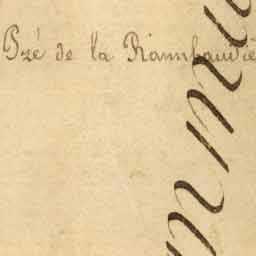 Pré de la Rambaudiè